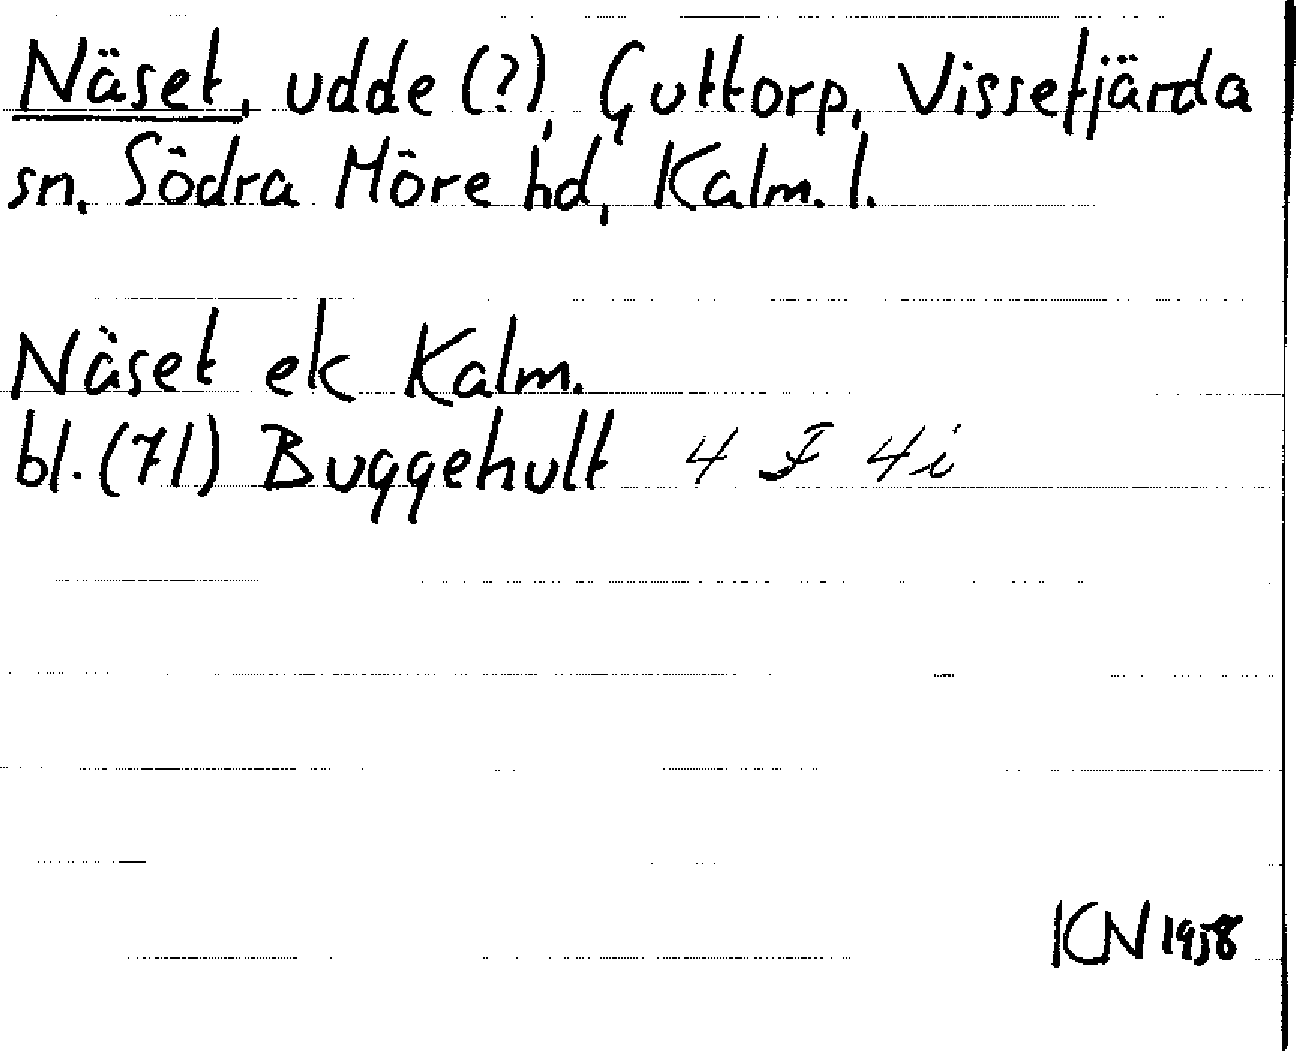 Näset, udde (?), Guttorp, Vissefjärda
sn, Södra Möre hd, Kalm. l.
Näset ek Kalm.
bl. (71) Buggehult 4 F 4i
KN 1958